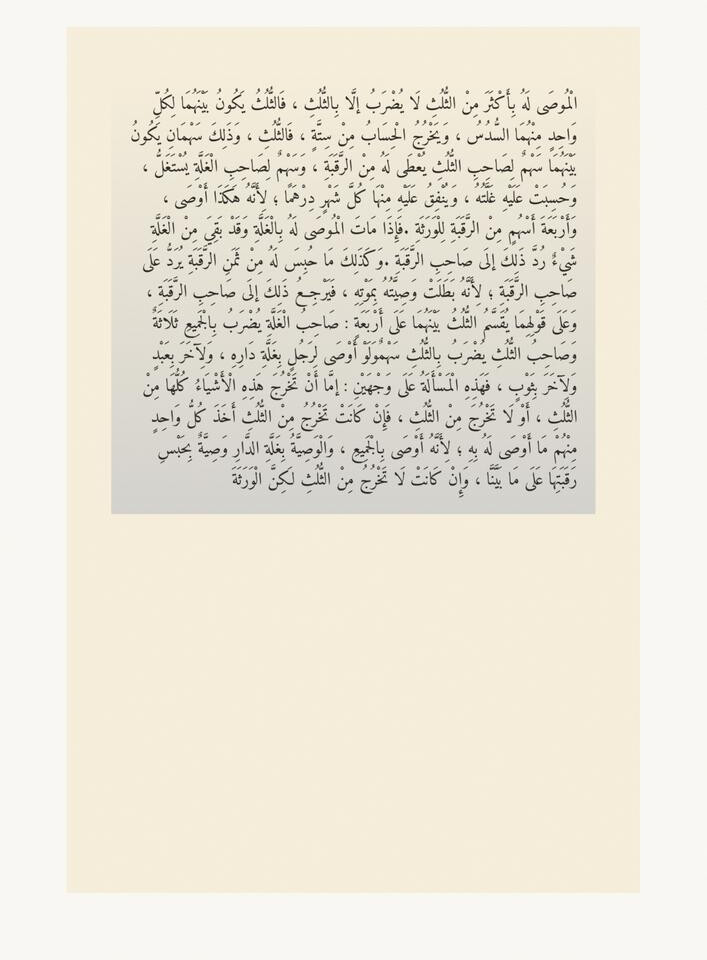 الْمُوصَى لَهُ بِأَكْثَرَ مِنْ الثُّلُثِ لَا يُضْرَبُ إلَّا بِالثُّلُثِ ، فَالثُّلُثُ يَكُونُ بَيْنَهُمَا لِكُلِّ
وَاحِدٍ مِنْهُمَا السُّدُسُ ، وَيَخْرُجُ الْحِسَابُ مِنْ سِتَّةٍ ، فَالثُّلُثِ ، وَذَلِكَ سَهْمَانِ يَكُونُ
بَيْنَهُمَا سَهْمٌ لِصَاحِبِ الثُّلُثِ يُعْطَى لَهُ مِنْ الرَّقَبَةِ ، وَسَهْمٌ لِصَاحِبِ الْغَلَّةِ يُسْتَغَلُّ ،
وَحُسِبَتْ عَلَيْهِ غَلَّتُهُ ، وَيُنْفِقُ عَلَيْهِ مِنْهَا كُلَّ شَهْرٍ دِرْهَمًا ؛ لِأَنَّهُ هَكَذَا أَوْصَى ،
وَأَرْبَعَةَ أَسْهُمٍ مِنْ الرَّقَبَةِ لِلْوَرَثَةِ .فَإِذَا مَاتَ الْمُوصَى لَهُ بِالْغَلَّةِ وَقَدْ بَقِيَ مِنْ الْغَلَّةِ
شَيْءٌ رُدَّ ذَلِكَ إلَى صَاحِبِ الرَّقَبَةِ .وَكَذَلِكَ مَا حُبِسَ لَهُ مِنْ ثَمَنِ الرَّقَبَةِ يُرَدُّ عَلَى
صَاحِبِ الرَّقَبَةِ ؛ لِأَنَّهُ بَطَلَتْ وَصِيَّتُهُ بِمَوْتِهِ ، فَيَرْجِعُ ذَلِكَ إلَى صَاحِبِ الرَّقَبَةِ ،
وَعَلَى قَوْلِهِمَا يُقَسَّمُ الثُّلُثُ بَيْنَهُمَا عَلَى أَرْبَعَةٍ : صَاحِبُ الْغَلَّةِ يُضْرَبُ بِالْجَمِيعِ ثَلَاثَةٌ
وَصَاحِبُ الثُّلُثِ يُضْرَبُ بِالثُّلُثِ سَهْمٌوَلَوْ أَوْصَى لِرَجُلٍ بِغَلَّةِ دَارِهِ ، وَلِآخَرَ بِعَبْدٍ
وَلِآخَرَ بِثَوْبٍ ، فَهَذِهِ الْمَسْأَلَةُ عَلَى وَجْهَيْنِ : إمَّا أَنْ تَخْرُجَ هَذِهِ الْأَشْيَاءُ كُلُّهَا مِنْ
الثُّلُثِ ، أَوْ لَا تَخْرُجَ مِنْ الثُّلُثِ ، فَإِنْ كَانَتْ تَخْرُجُ مِنْ الثُّلُثِ أَخَذَ كُلُّ وَاحِدٍ
مِنْهُمْ مَا أَوْصَى لَهُ بِهِ ؛ لِأَنَّهُ أَوْصَى بِالْجَمِيعِ ، وَالْوَصِيَّةُ بِغَلَّةِ الدَّارِ وَصِيَّةٌ بِحَبْسِ
رَقَبَتِهَا عَلَى مَا بَيَّنَّا ، وَإِنْ كَانَتْ لَا تَخْرُجُ مِنْ الثُّلُثِ لَكِنَّ الْوَرَثَةَ